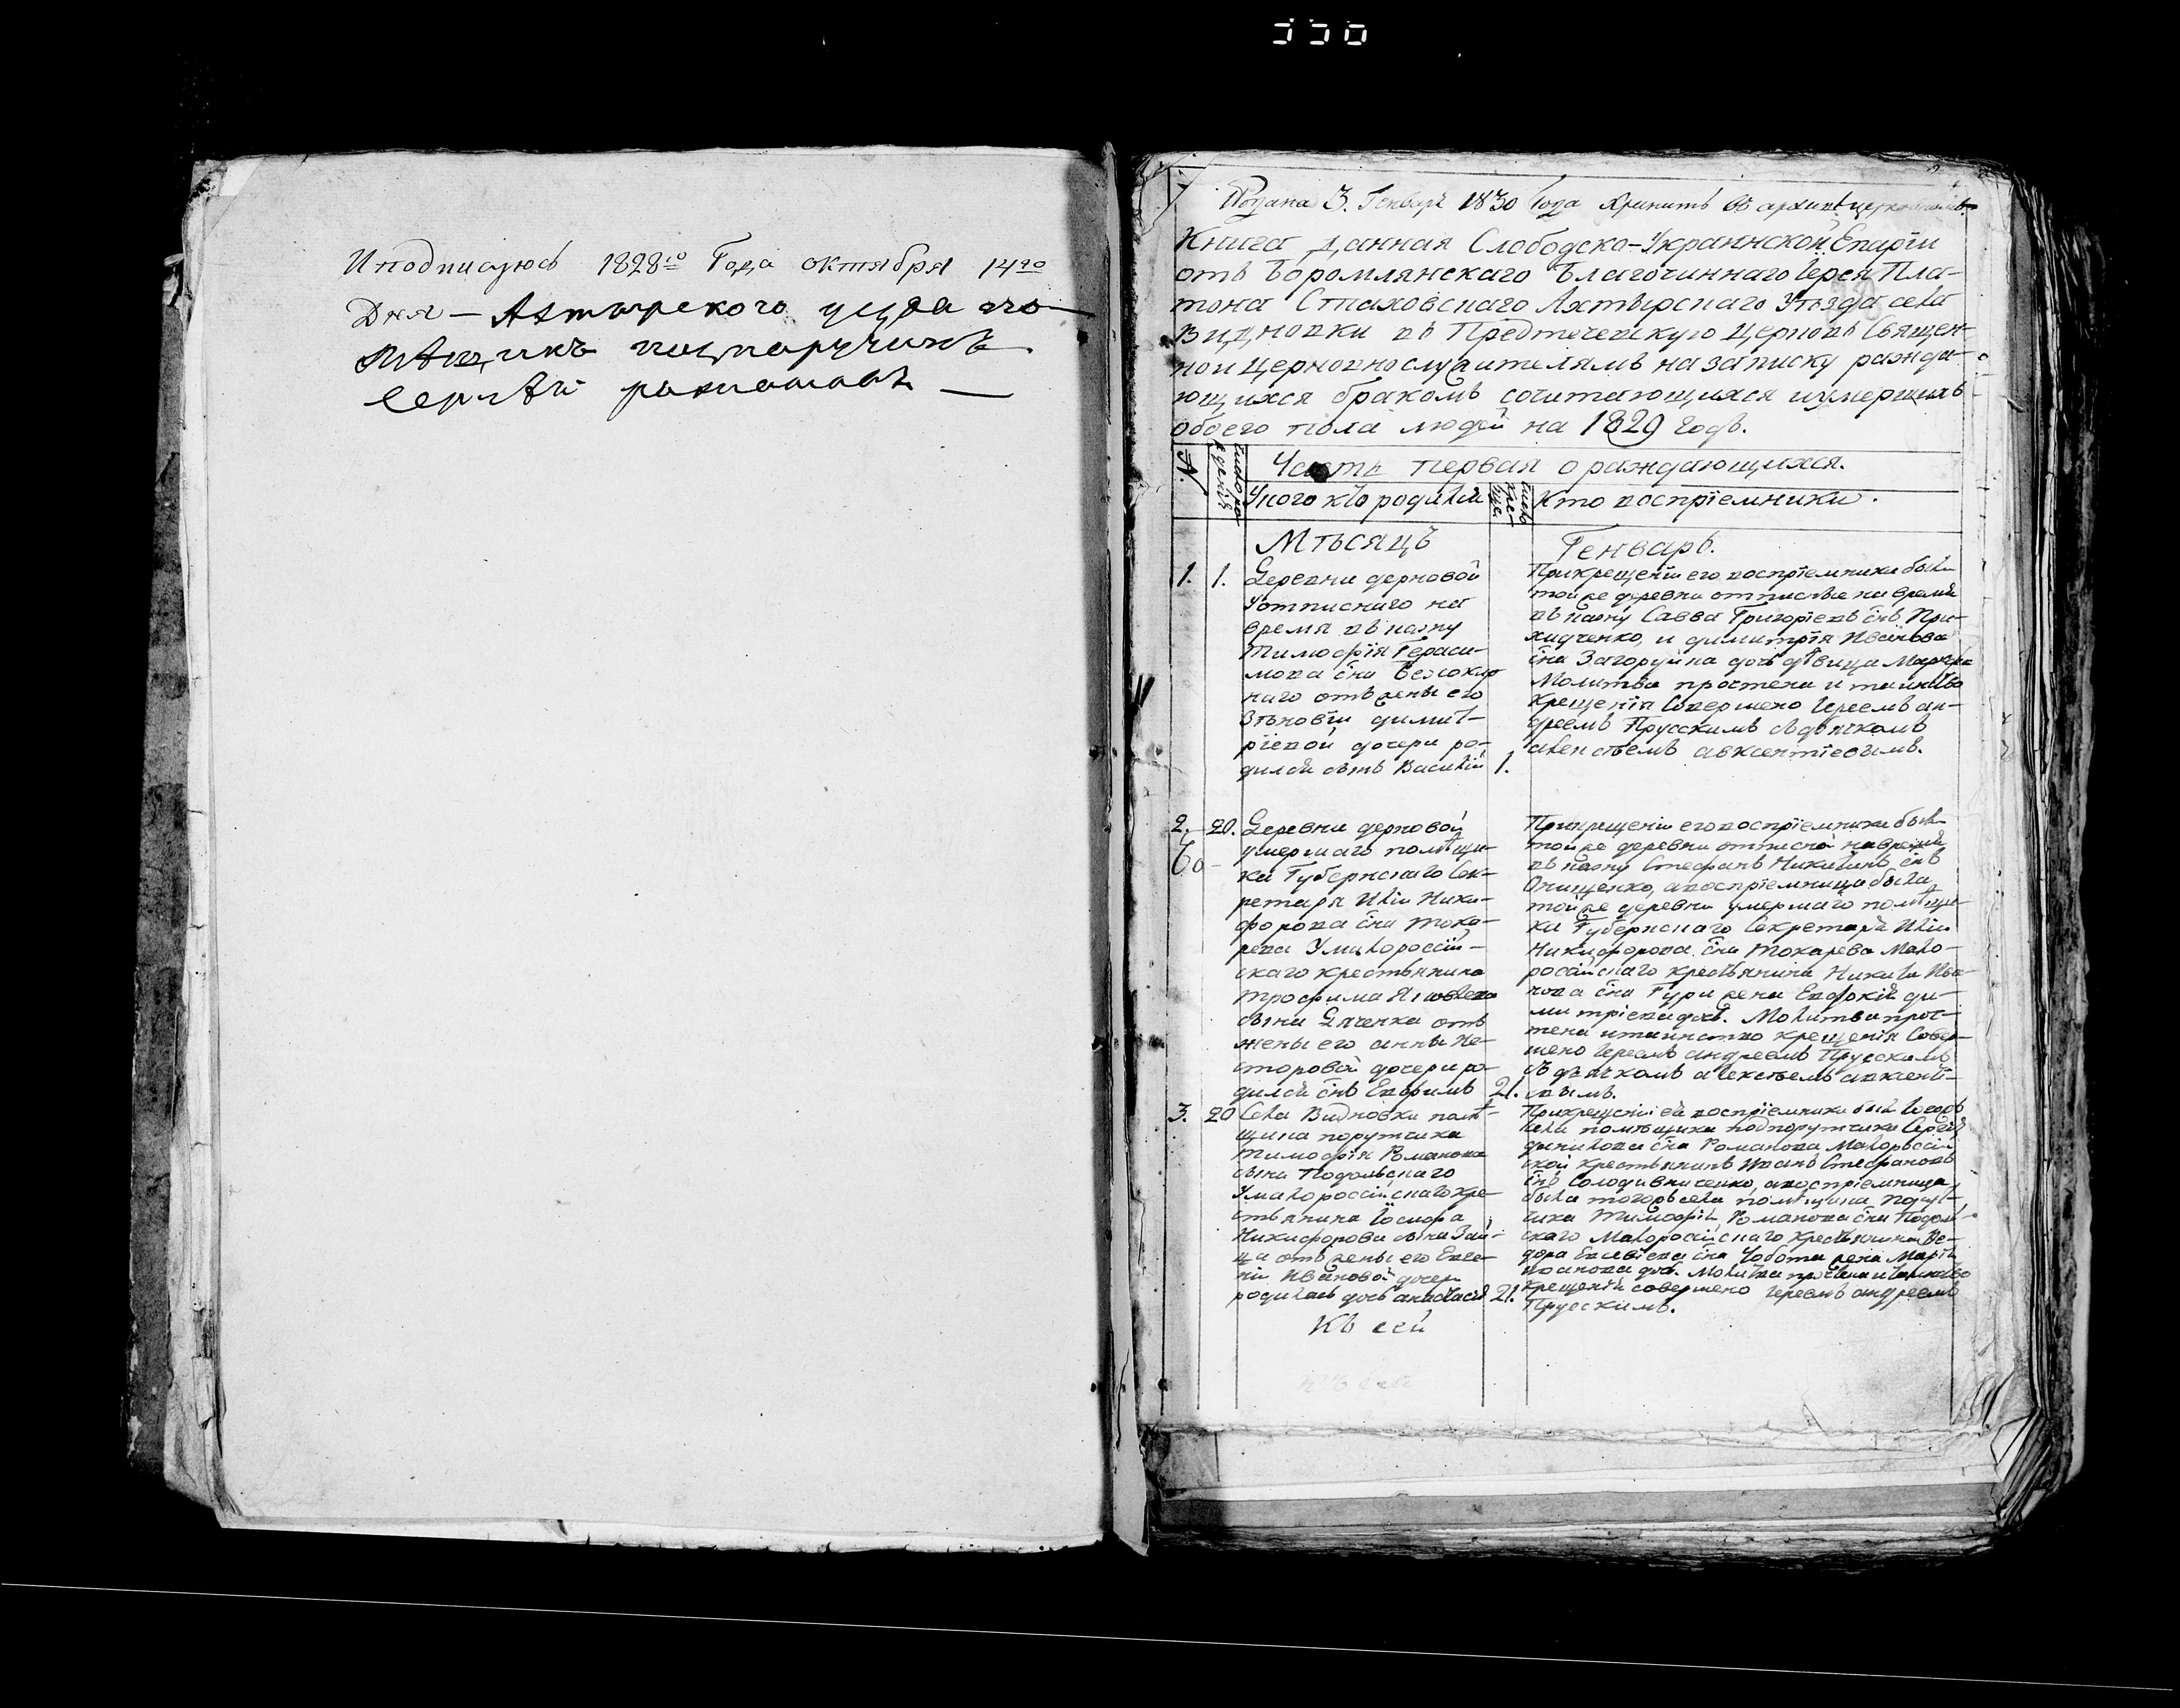 550
И подписуюсь 1828го Года октября 14го
Дня — Ахтырского уезда по
мѣщикъ подпоручикъ
Сергѣй романовъ
Подана 3. Генваря 1830 Года Хранить въ архивѣ церковномъ
Книга данная Слободско-Украинской Епархіи
отъ Боромлянскаго Благочиннаго Іерея Пла-
тона Стаховскаго Ахтырскаго Уѣзда села
Видновки въ Предтечевскую Церковь Священ-
ноицерковнослужителямъ на записку ражда-
ющихся бракомъ сочитающихся иумершихъ
обоего пола людей на 1829 Годъ.
№.
Часть первая о раждающихся.
Уного кто родился
Кто воспріемники.
Мѣсяцъ
Генварь.
1. 1. Деревни дерновой
Уотписнаго на
время въ казну
Тимофія Гераси-
мова сна
наго отъ жены его
Зѣновіи димит-
ріевой дочери ро-
дился сынъ Василій 1.
Прикрещеніи его воспріемники были
тойже деревни отписные на время
въ казну Савва Григоріевъ снъ При-
ходченко, и димитрія Иванова
сна Загоруйка дочь дѣвица
Молитва прочтена и таинство
Крещенія Совершено Іереемъ ан-
дреемъ Прусскимъ съдьячкомъ
алексѣемъ авксентіевымъ.
2. 20. Деревни дерновой
умершаго помѣщи-
ка Губернскаго Сек-
ретаря Иліи Ники-
форова сна Тока-
рева Умалороссій-
скаго крестьянина
трофима
сына Дяченка отъ
жены его анны Не-
сторовой дочери ро-
дился снъ Ефимъ 21.
Прикрещеніи его воспріемники были
тойже деревни отписной навремя
въ казну Стефанъ Никитинъ снъ
Онищенко, авоспріемница была
тойже деревни умершаго помѣщи-
ка Губернскаго Секретаря Иліи
Никифорова сна Токарева Мало-
россійскаго крестьянина Никиты Ива-
нова сна Гури жена Евдокія ди-
митріева дочь. Молитва проч-
тена итаинство крещенія Совер-
шено Іереемъ андреемъ Прусскимъ
съ дьячкомъ алексѣемъ авксенті-
евымъ.
3. 20 Села Видновки помѣ-
щика порутчика
Тимофія Романова
сына Подольскаго
Умалороссійскагокре-
стьянина Іосифа
Никифорова сына Зай-
ца отъ жены его Евге-
ніи Ивановой дочери
родилась дочь анастасія 21.
Прикрещеніи ей воспріемники были тогожъ
села помѣщика подпорутчика Сергѣя
данилова сна Романова Малороссій-
ской крестьянинъ Иванъ Стефановъ
снъ Солодивниченко, авоспріемница
была тогожъ села помѣщика
Тимофія Романова сна Подоль-
скаго Малороссійскаго крестьянина Ѳе-
дора Евсевіева сна Чобота жена Марія
Иванова дочь. Молитва прочтена итаинство
Крещенія совершено Іереемъ андреемъ
Прусскимъ.
Къ сей